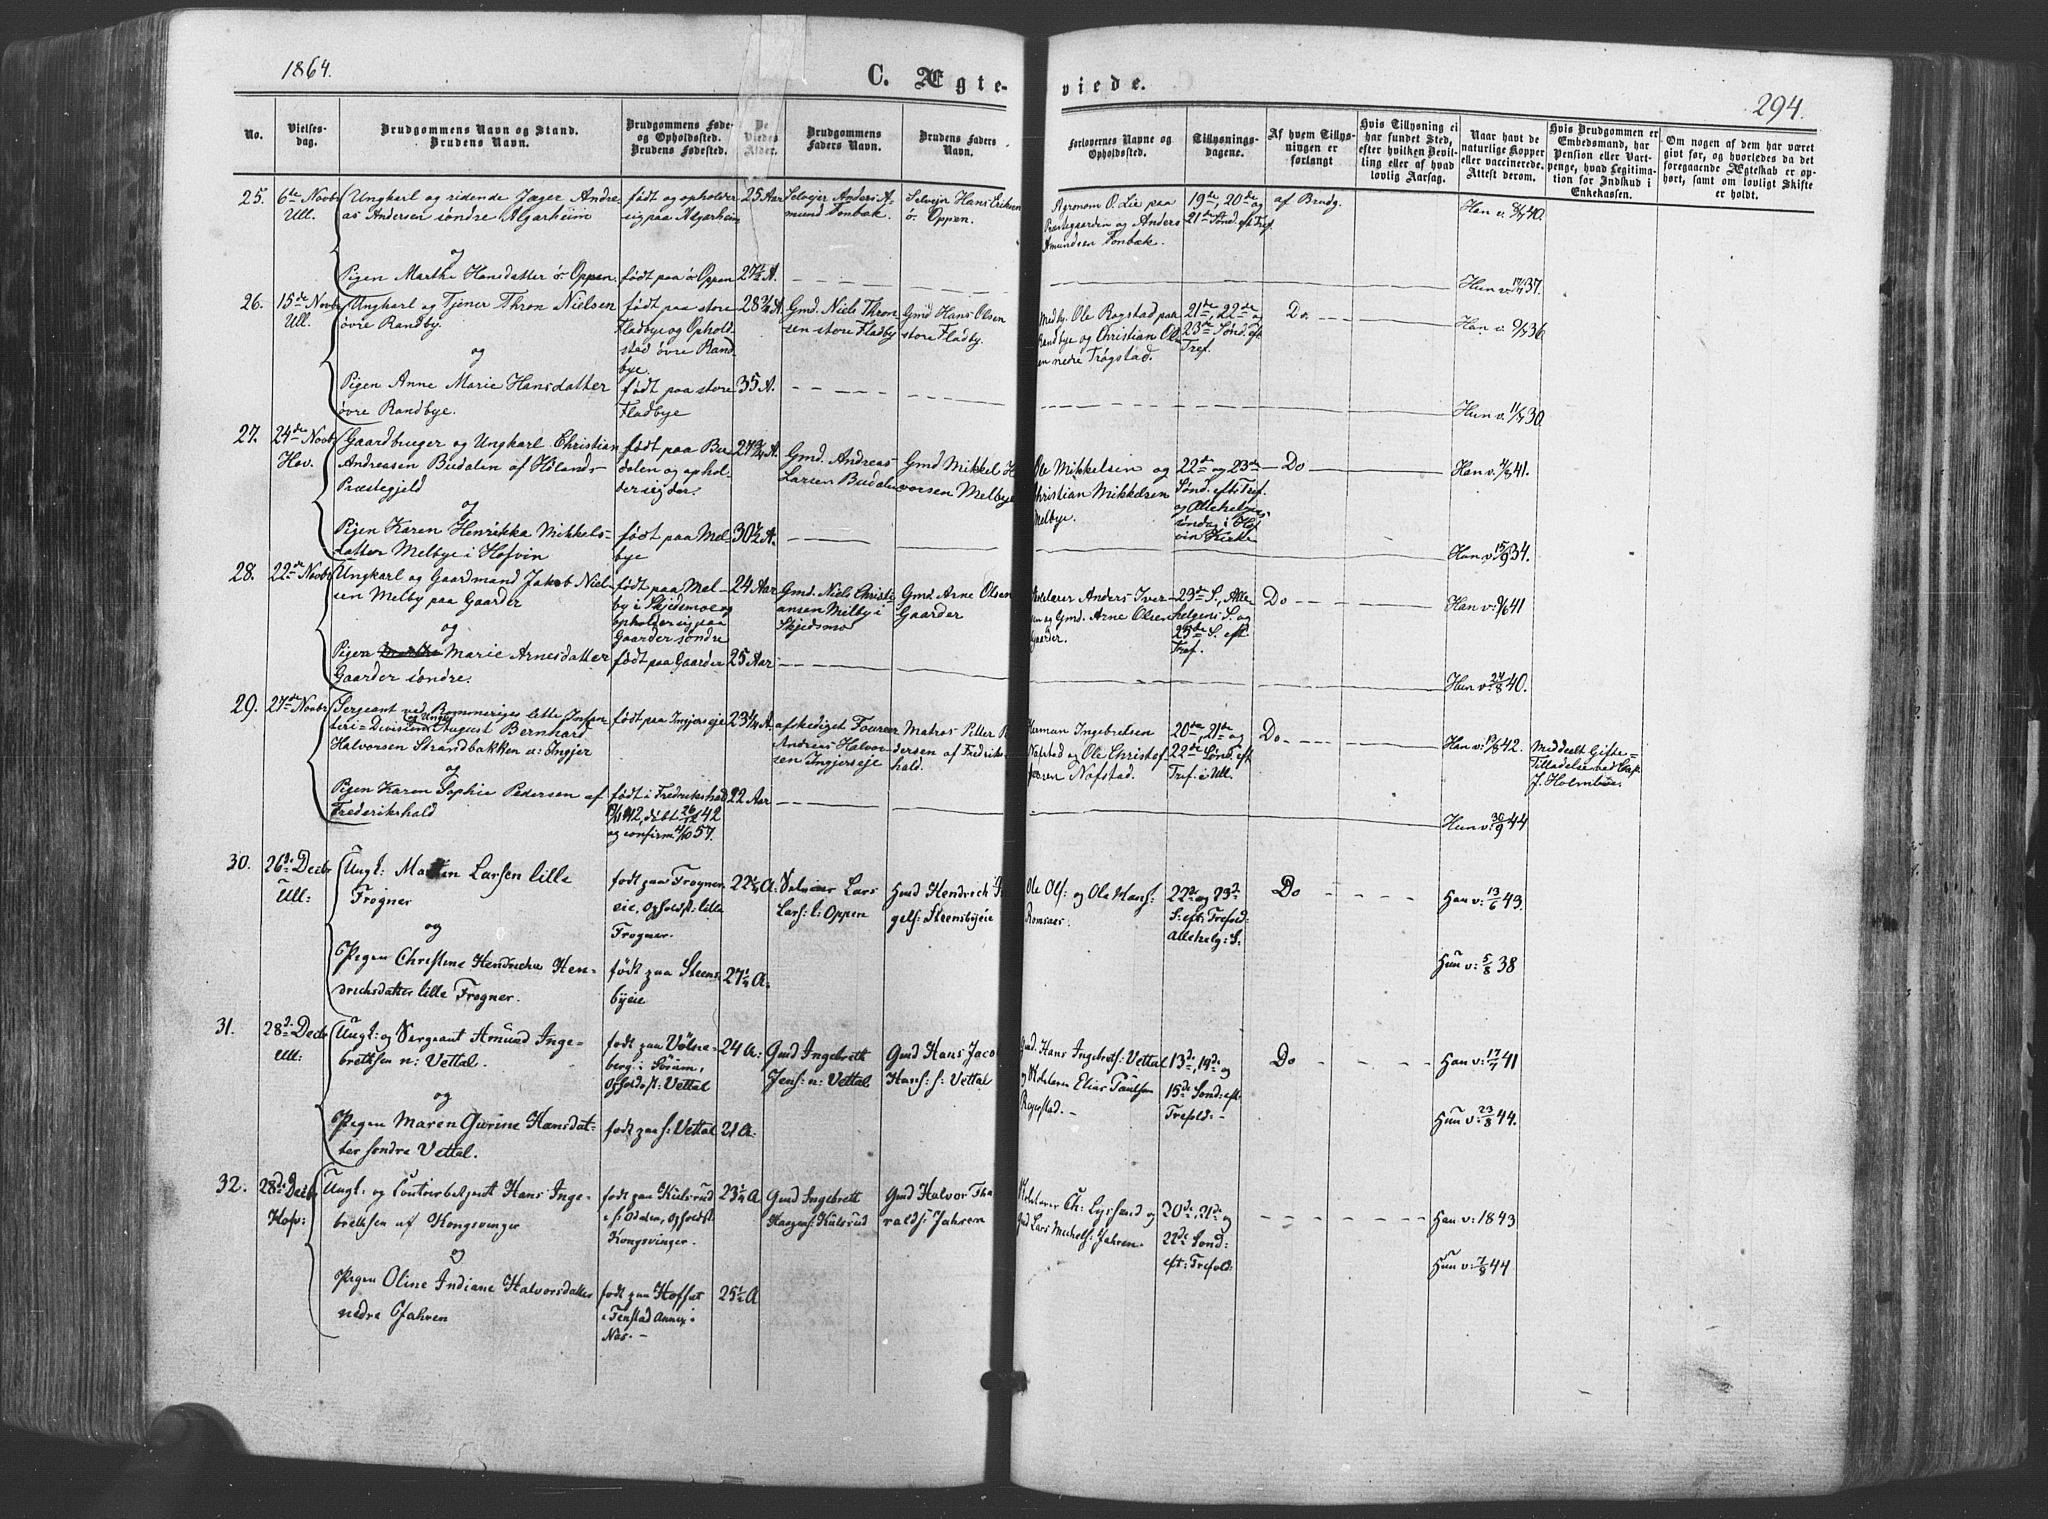 1864.
C. Ægte-
viede.
294.
No.
Vielses-
dag.
Brudgommens Navn og Stand.
Brudens Navn.
Brudgommens Føde-
og Opholdssted.
Brudens Fødested.
De
Viedes
Alder.
Brudgommens
Faders Navn.
Brudens Faders
Navn.
Forlovernes Navne og
Opholdssted.
Tillysnings-
dagene.
Af hvem Tillys-
ningen er
forlangt
Hvis Tillysning ei
har fundet Sted,
efter hvilken Bevil-
ling eller af hvad
lovlig Aarsag.
Naar havt de
naturlige Kopper
eller vaccinerede.
Attest derom.
Hvis Brudgommen er
Embedsmand, har
Pension eller Vart-
penge, hvad Legitima-
tion for Indskud i
Enkekassen.
Om nogen af dem har været
gift før, og hvorledes da det
foregaaende Ægteskab er op-
hørt, samt om lovligt Skifte
er holdt.
25.
6te Novbr
Ull.
Ungkarl og ridende Jæger Andre-
as Andersen søndre Algarheim
og
Pigen Marthe Hansdatter ö: Oppen
født og opholder
sig paa Algarheim
født paa ö: Oppen
25 Aar
27½ A.
Selveier Anders A-
mund Tonbæk.
Selveier Hans Eriksen
ö: Oppen.
Agronom O. Lie paa
Præstegaarden og Anders
Amundsen Tonbæk.
19de, 20de og
21de Sønd. eft. Tref.
af Brudg.
Han v. 8/7 40.
Hun v. 17/7 37.
26.
15de Novbr
Ull.
Ungkarl og Tjener Thron Nielsen
övre Randby.
og
Pigen Anne Marie Hansdatter
övre Randbye.
født paa store
Fladbye og Ophold-
sted övre Rand-
bye.
født paa store
Fladbye
28¾ A.
35 A.
Gmd. Niels Thron-
sen store Fladby
Gmd Hans Olsen
store Fladby.
Medhj. Ole Rogstad paa
Randbye og Christian Ol-
sen nedre Trøgstad.
21de, 22de og
23de Sønd. eft.
Tref.
Do
Han v. 9/7 36
Hun v. 11/7 30.
27.
24de Novbr
Hov.
Gaardbruger og Ungkarl Christian
Andreasen Budalen af Hölands
Præstegjeld
og
Pigen Karen Henrikka Mikkels-
datter Melbye i Hofvin
født paa Bu-
dalen og ophol-
der sig der.
født paa Mel-
bye
27¾ A.
30½ A.
Gmd. Andreas
Larsen Budalen
Gmd Mikkel H
vorsen Melbye
Ole Mikkelsen og
Christian Mikkelsen
Melbye.
22de og 23de
Sønd. eft. Tref.
og Allehelgens-
söndag i Hof-
vin Kirke
Do
Han v. 4/8 41.
Han v. 15/9 34.
28.
22de Novbr
Ungkarl og Gaardmand Jakob Niel-
sen Melby paa Gaarder
og
Pigen Marie Arnesdatter
Gaarder söndre.
født paa Mel-
by i Skjedsmo og
opholder sig paa
Gaarder söndre
født paa Gaarder
24 Aar
25 Aar
Gmd. Niels Christi-
ansen Milby i
Skjedsmo
Gmd. Arne Olsen
Gaarder
Anders Iver-
sen og Gmd. Arne Olsen
Gaarder.
23de S., Alle-
helgens S. og
25de S. eft.
Tref.
Do
Han v: 9/6 41
Hun v: 24/8 40.
29.
27de Novbr
Sergeant ved Romeriges lette Infan-
teri-Division og Ungk. August Bernhard
Halvorsen Strandbakken u: Ingjer
og
Pigen Karen Sophie Pedersen af
Frederikshald
født paa Ingjerseje
født i Fredrikshald
1942, döbt 26/12 42
og confirm. 4/10 57.
23¼ A.
22 Aar
afskediget Fourer
Andreas Halvor-
sen Ingjerseje
Matros Petter P
dersen af Fredriks-
hald.
Herman Ingebretsen
Nafstad og Ole Christof-
fersen Nafstad.
20de, 21de og
22de Sønd. eft
Tref. i Ull.
Do
Han v: 19/8 42.
Hun v: 30/9 44
Meddeelt Gifte-
Tilladelse ved Cap.
J. Holmboe.
30.
26de Decbr
Ull:
Ungk: Martin Larsen lille
Frogner
og
Pigen Christine Hendrecka Hen-
drichsdatter lille Frogner.
født paa Frogner-
eie, Opholdst: lille
Frogner.
født paa Steens-
byeie
22¼ A.
27¼ A.
Selveier Lars
Lars: l: Oppen
Gmd Hendrich In
gels: Steensbyeie
Ole Ols: og Ole Hans:
Romsaas.
22de og 23de
S: eft: Trefold:
Allehelg: S.
Do
Han v: 13/6 43.
Hun v: 5/8 38
31.
28de Decbr
Ull:
Ungk: og Sergeant Amund Inge-
bretsen n: Vettal.
og
Pigen Maren Gurine Hansdat-
ter söndre Vettal.
født paa Vølne-
berg i Sörum,
Opholdst: Vettal
født paa s: Vettal
24 A:
21 A:
Gmd Ingebrett
Jens: n: Vettal
Gmd Hans Jacob
Hans: s: Vettal
Gmd. Hans Ingebrets: Vettal
og Elias Paulsen
Ragestad.
13de, 14de og
15de Sønd: eft:
Trefold:
Do
Han v: 17/7 41
Hun v: 23/8 44.
32.
28de Decbr
Hofv:
Ungk: og Hans Inge-
bretsen af Kongsvinger
og
Pigen Oline Indiane Halvorsdatter
nedre Jahren
født paa Kulsrud
i s: Odalen, Opholdst:
Kongsvinger.
født paa Hofset
i Fenstad Annex i
Næs.
23¼ A
25½ A
Gmd Ingebrett
Haagens: Kulsrud
Gmd Halvor Tha-
ralds: Jahren
Ch: Lyshaud og
Gmd Lars Michels: Jahren.
20de, 21de og
22de Sønd:
eft: Trefold:
Han v: 1843
Hun v: 7/8 44